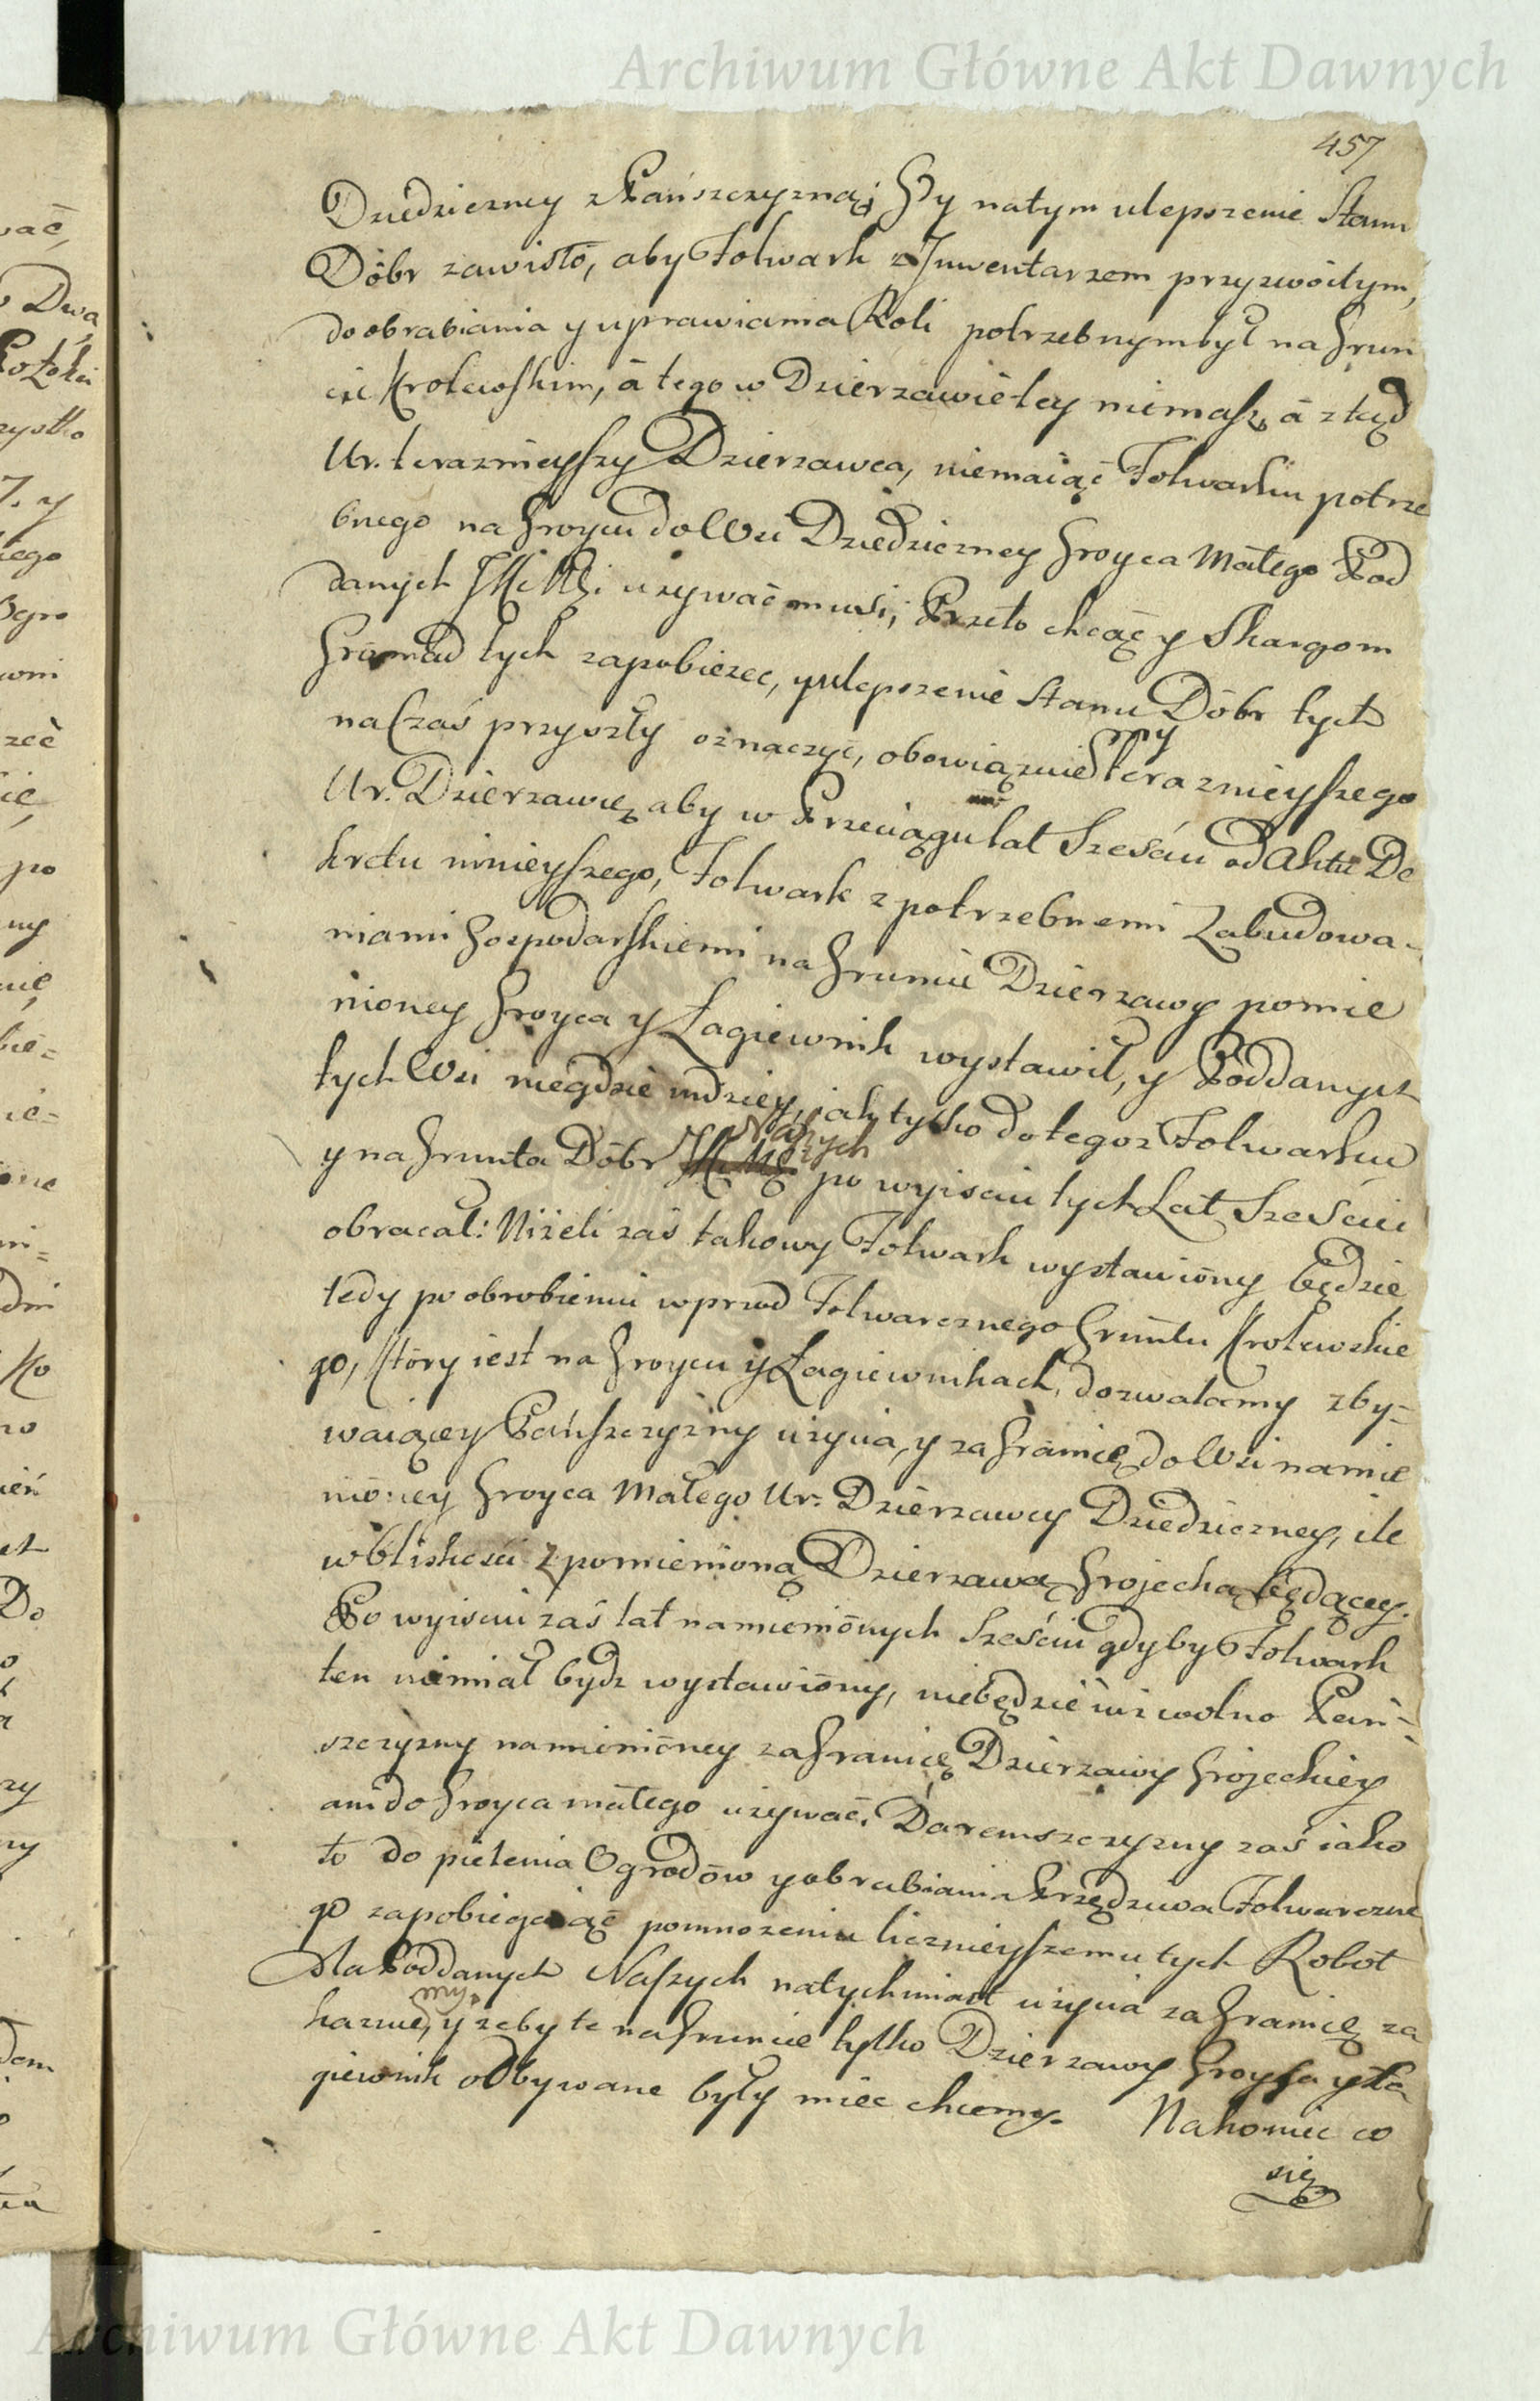 Archiwum Główne Akt Dawnych
457
Dziedziczney z Pańszczyzną; Gdy natym ulepszenie Stanu
Dóbr zawisło, aby Folwark z Inwentarzem przyzwoitym,
do obrabiania y uprawiania Roli potrzebnym był na Grun
cie Krolewskim, á tego w Dzierzawie tey niemasz, á ztąd
Ur. terazńieyszy Dzierzawca, niemaiąć Folwarku potrze
bnego na Groycu do Wsi Dziedziczney Groyca Małego Pod
danych JKMci uzywać musi; Przeto chcąć y Skargom
Gromad tych zapobiezec, y ulepszenie Stanu Dóbr tych
na Czas przyszły oznaczyć, obowiązuiemy terazńieyszego
Ur. Dzierzawcę aby w Przeciągu lat Sześciu od Aktu De
kretu ninieyszego, Folwark z potrzebnemi Zabudowa-
niami Gospodarskiemi na Gruncie Dzierzawy pomie
nioney Groyca y Łagiewnik wystawił, y Poddanych
tych Wsi niegdzie indziey, jak tylko do tegoz Folwarku
y na Grunta Dóbr Naszych po wyisciu tych Lat Sześciu
obracał: Niżeli zaś takowy Folwark wystawióny będzie
tedy po obrobieniu wprzod Folwarcznego Gruntu Krolewskie
go, który iest na Groycu y Łagiewnikach, dozwalamy zby-
waiącey Pańszczyzny uzycia, y za Granicę do Wsi namie
nióney Groyca Małego Ur. Dzierzawcy Dziedziczney, ile
w bliskości z pomienioną Dzierzawą Grojecką będącey.
Po wyisciu zaś lat namienionych Sześciu gdyby Folwark
ten niemiał bydz wystawióny, niebędzie iuz wolno Pań-
szczyzny namienióney za Granicę Dzierzawy Grojeckiey
ani do Groyca małego uzywać. Daremszczyzny zaś iako
to do pielenia Ogrodów y obrabiania Przędziwa Folwarczne
go zapobiegaiąć pomnozeniu licznieyszemu tych Robót
Na Poddanych Naszych natychmiast uzycia za Granicę za
kazuiemy, y zeby te na Gruncie tylko Dzierzawy Groyca y Ła
giewnik odbywane były miec chcemy. Nakoniec co
się
Archiwum Główne Akt Dawnych